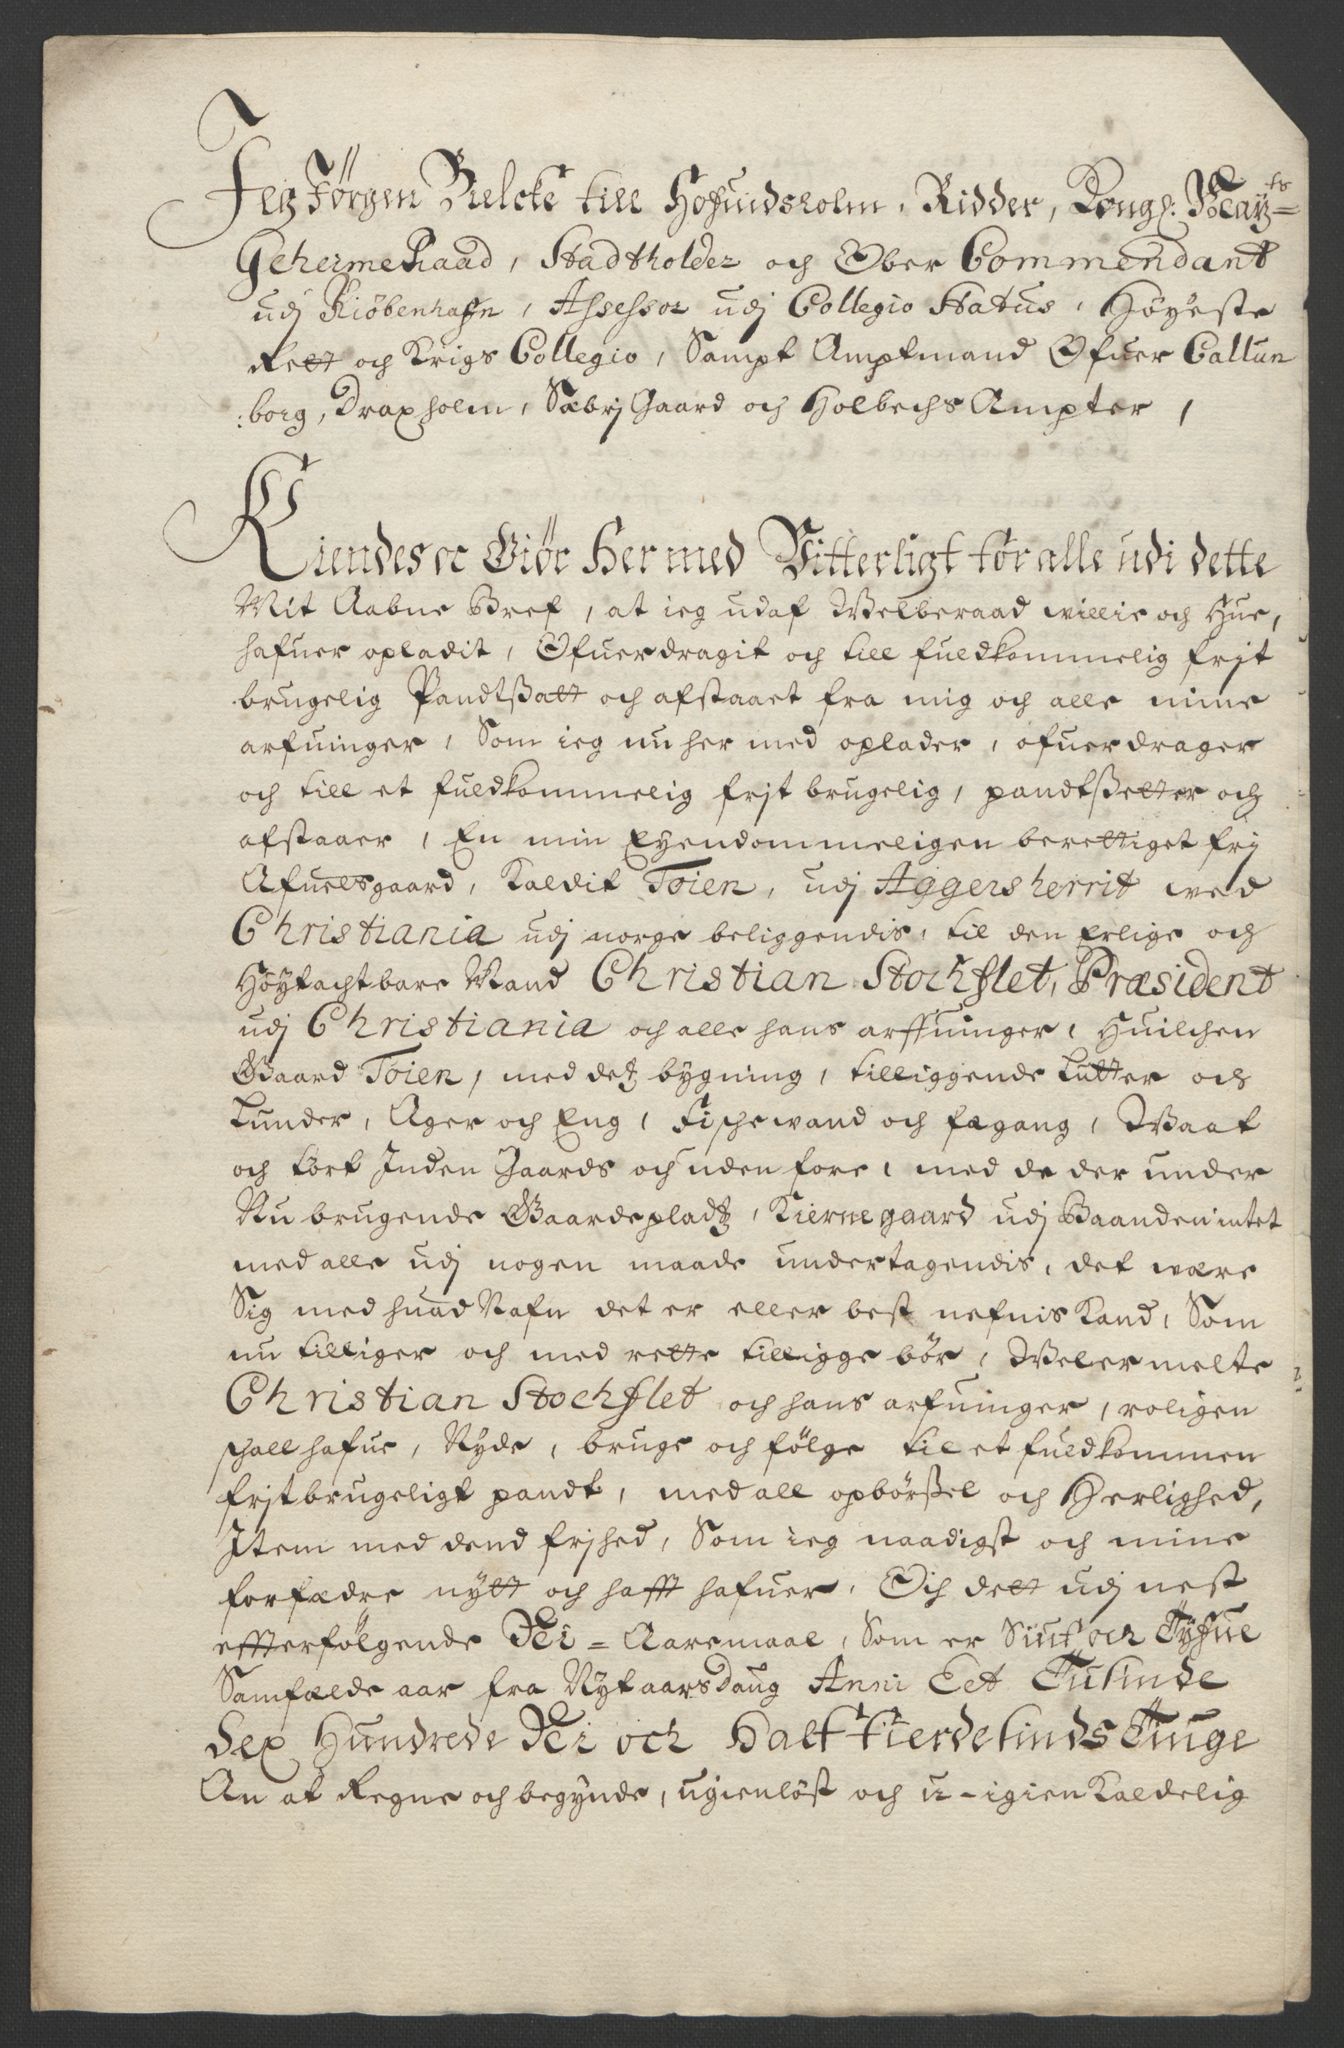 Jeg Jörgen Bielcke till Hofuidsholm, Ridder, Kongl: Mayts=
GehermeRaad, Stadtholder och Ober Commendant
udj Kiöbenhafn, Assessor udj Collegio Status, Höyeste
Rett och Krigs Collegio, Sampt Amptmand Ofuer Callun
:borg, Draxholm, Sæbyj Gaard och Holbechs Ampter,
Kiendes oc Giör Her med Vitterligt for alle udi dette
Mit Aabne Bref, at ieg udaf Welberaad willie och Hue,
hafuer opladit, Ofuerdragit och till fuldkommelig frjt
brugelig Pandtßatt och afstaaet fra mig och alle mine
arfuinger, Som ieg nu her med oplader, ofuerdrager
och till et fuldkommelig frjt brugelig, pandtßetter och
afstaaer, En min Eyendommeligen berettiget frj
Afuelsgaard, Kaldit Toien, udj Aggersherrit wed
Christiania udj norge beliggendis, til den Erlige och
Höytachtbare Mand Christian Stochflet, Præsident
udj Christiania och alle hans arffuinger, Huilchen
Gaard Toien, med detz bygning, tilliggende Lutter och
Lunder, Ager och Eng, Fischewand och fægang, Waat
och tört Inden Gaards och uden fore, med de der under
Nu brugende Gaardepladtz, Kiernegaard udj Baanden intet
med alle udj nogen maade undertagendis, det være
Sig med huad Nafn det er eller best nefnis Kand, Som
nu tilliger och med rette tilligge bör, Welermelte
Christian Stochflet och hans arfuinger, roligen
schall hafue, Nyde, bruge och fölge til et fuldkommen
frjtbrugeligt pandt, med all opbörßel och Herlighed,
Item med dend frjhed, Som ieg naadigst och mine
forfædre nytt och hafft hafuer, Och dett udj nest
effterfölgende Trei = Aaremaal, Som er Siuf och Tyfue
Samfælde aar fra Nytaarsdaug Anni Eet Tusinde
Sex Hundrede Trei och Halftfierdesinds Tiuge
An at Regne och begynde, ugienlöst och u-igienkaldelig